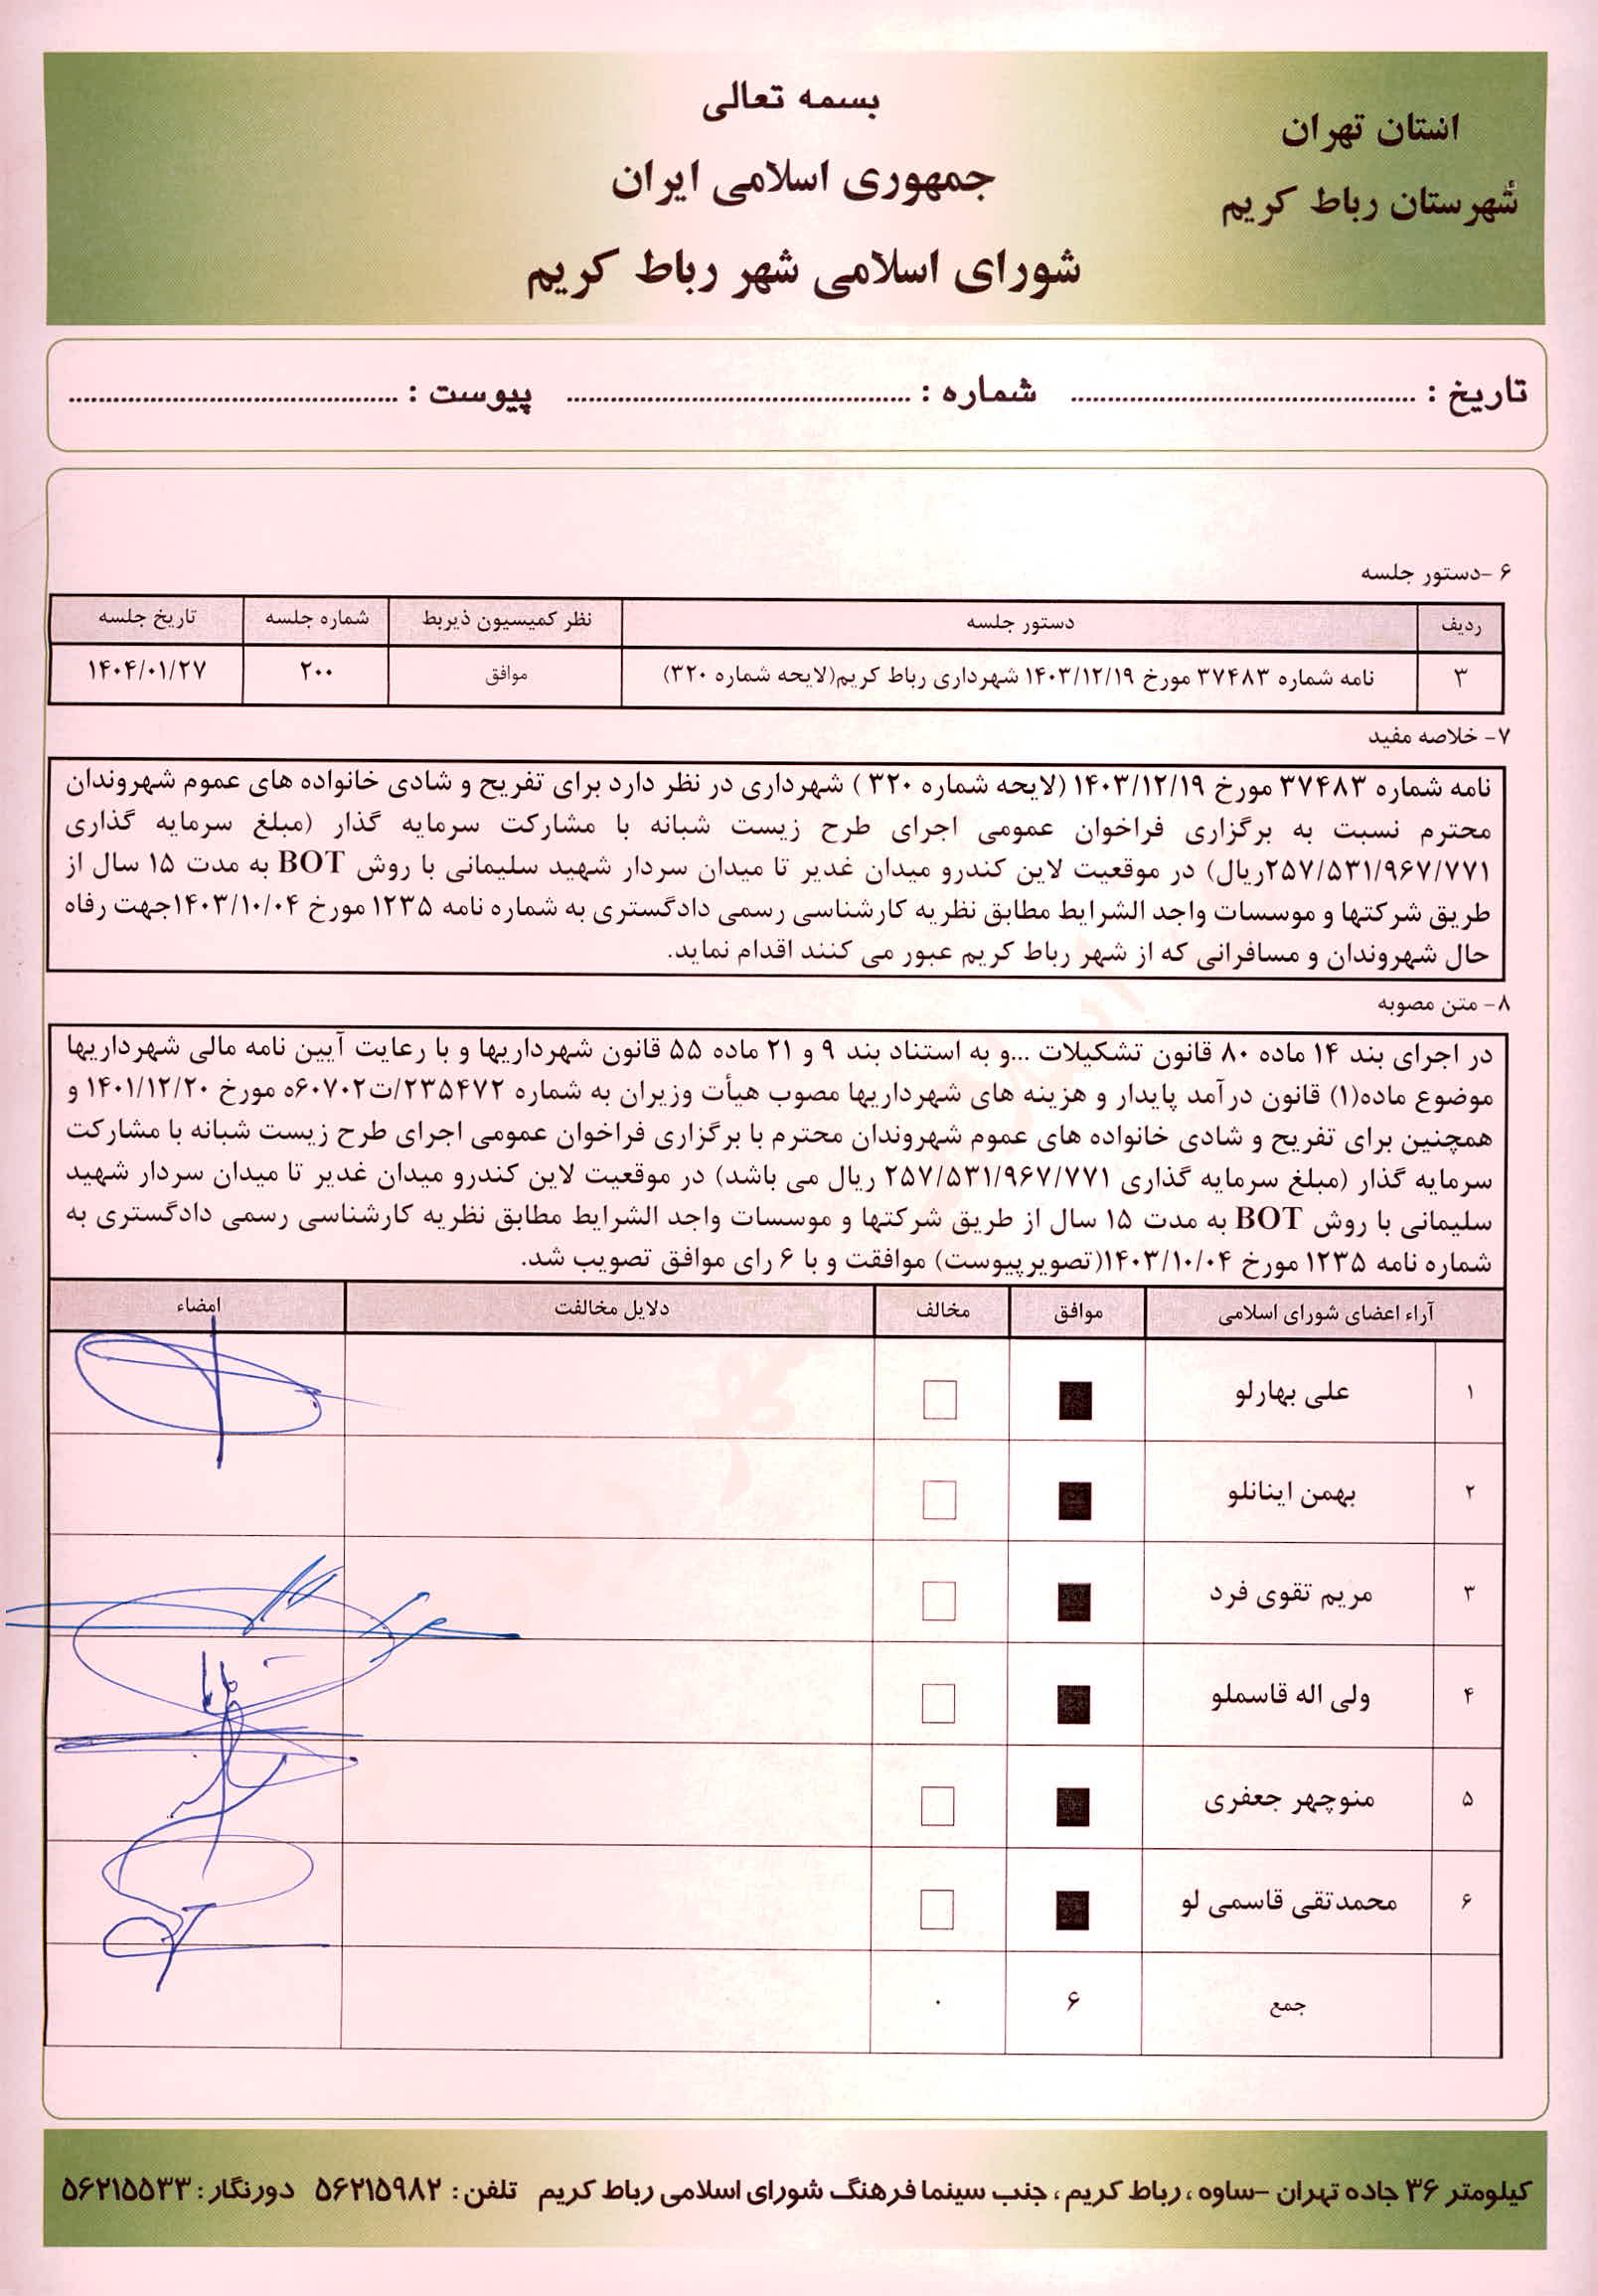 بسمه تعالی
استان تهران
جمهوری اسلامی ایران
شهرستان رباط کریم
شورای اسلامی شهر رباط کریم
تاریخ : ............ شماره : ............ پیوست : ............
۶ -دستور جلسه
ردیف دستور جلسه نظر کمیسیون ذیربط شماره جلسه تاریخ جلسه
۳ نامه شماره ۳۷۴۸۳ مورخ ۱۴۰۳/۱۲/۱۹ شهرداری رباط کریم(لایحه شماره ۳۲۰) موافق ۲۰۰ ۱۴۰۴/۰۱/۲۷
۷- خلاصه مفید
نامه شماره ۳۷۴۸۳ مورخ ۱۴۰۳/۱۲/۱۹ (لایحه شماره ۳۲۰ ) شهرداری در نظر دارد برای تفریح و شادی خانواده های عموم شهروندان
محترم نسبت به برگزاری فراخوان عمومی اجرای طرح زیست شبانه با مشارکت سرمایه گذار (مبلغ سرمایه گذاری
۲۵۷/۵۳۱/۹۶۷/۷۷۱ریال) در موقعیت لاین کندرو میدان غدیر تا میدان سردار شهید سلیمانی با روش BOT به مدت ۱۵ سال از
طریق شرکتها و موسسات واجد الشرایط مطابق نظریه کارشناسی رسمی دادگستری به شماره نامه ۱۲۳۵ مورخ ۱۴۰۳/۱۰/۰۴جهت رفاه
حال شهروندان و مسافرانی که از شهر رباط کریم عبور می کنند اقدام نماید.
۸- متن مصوبه
در اجرای بند ۱۴ ماده ۸۰ قانون تشکیلات ...و به استناد بند ۹ و ۲۱ ماده ۵۵ قانون شهرداریها و با رعایت آیین نامه مالی شهرداریها
موضوع ماده(۱) قانون درآمد پایدار و هزینه های شهرداریها مصوب هیأت وزیران به شماره ۲۳۵۴۷۲/ت۶۰۷۰۲ه مورخ ۱۴۰۱/۱۲/۲۰ و
همچنین برای تفریح و شادی خانواده های عموم شهروندان محترم با برگزاری فراخوان عمومی اجرای طرح زیست شبانه با مشارکت
سرمایه گذار (مبلغ سرمایه گذاری ۲۵۷/۵۳۱/۹۶۷/۷۷۱ ریال می باشد) در موقعیت لاین کندرو میدان غدیر تا میدان سردار شهید
سلیمانی با روش BOT به مدت ۱۵ سال از طریق شرکتها و موسسات واجد الشرایط مطابق نظریه کارشناسی رسمی دادگستری به
شماره نامه ۱۲۳۵ مورخ ۱۴۰۳/۱۰/۰۴(تصویرپیوست) موافقت و با ۶ رای موافق تصویب شد.
آراء اعضای شورای اسلامی موافق مخالف دلایل مخالفت امضاء
۱ علی بهارلو ■ □
۲ بهمن اینانلو ■ □
۳ مریم تقوی فرد ■ □
۴ ولی اله قاسملو ■ □
۵ منوچهر جعفری ■ □
۶ محمدتقی قاسمی لو ■ □
جمع ۶ ۰
کیلومتر ۳۶ جاده تهران -ساوه ، رباط کریم ، جنب سینما فرهنگ شورای اسلامی رباط کریم تلفن : ۵۶۲۱۵۹۸۲ دورنگار : ۵۶۲۱۵۵۳۳